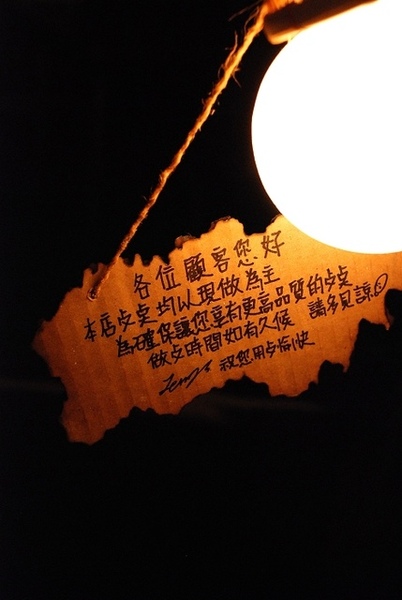 各位顧客您好
本店歺奌均以現做為主
為確保讓您享有更高品質的歺奌
做歺時間如有久候 請多見諒
祝您用歺愉快